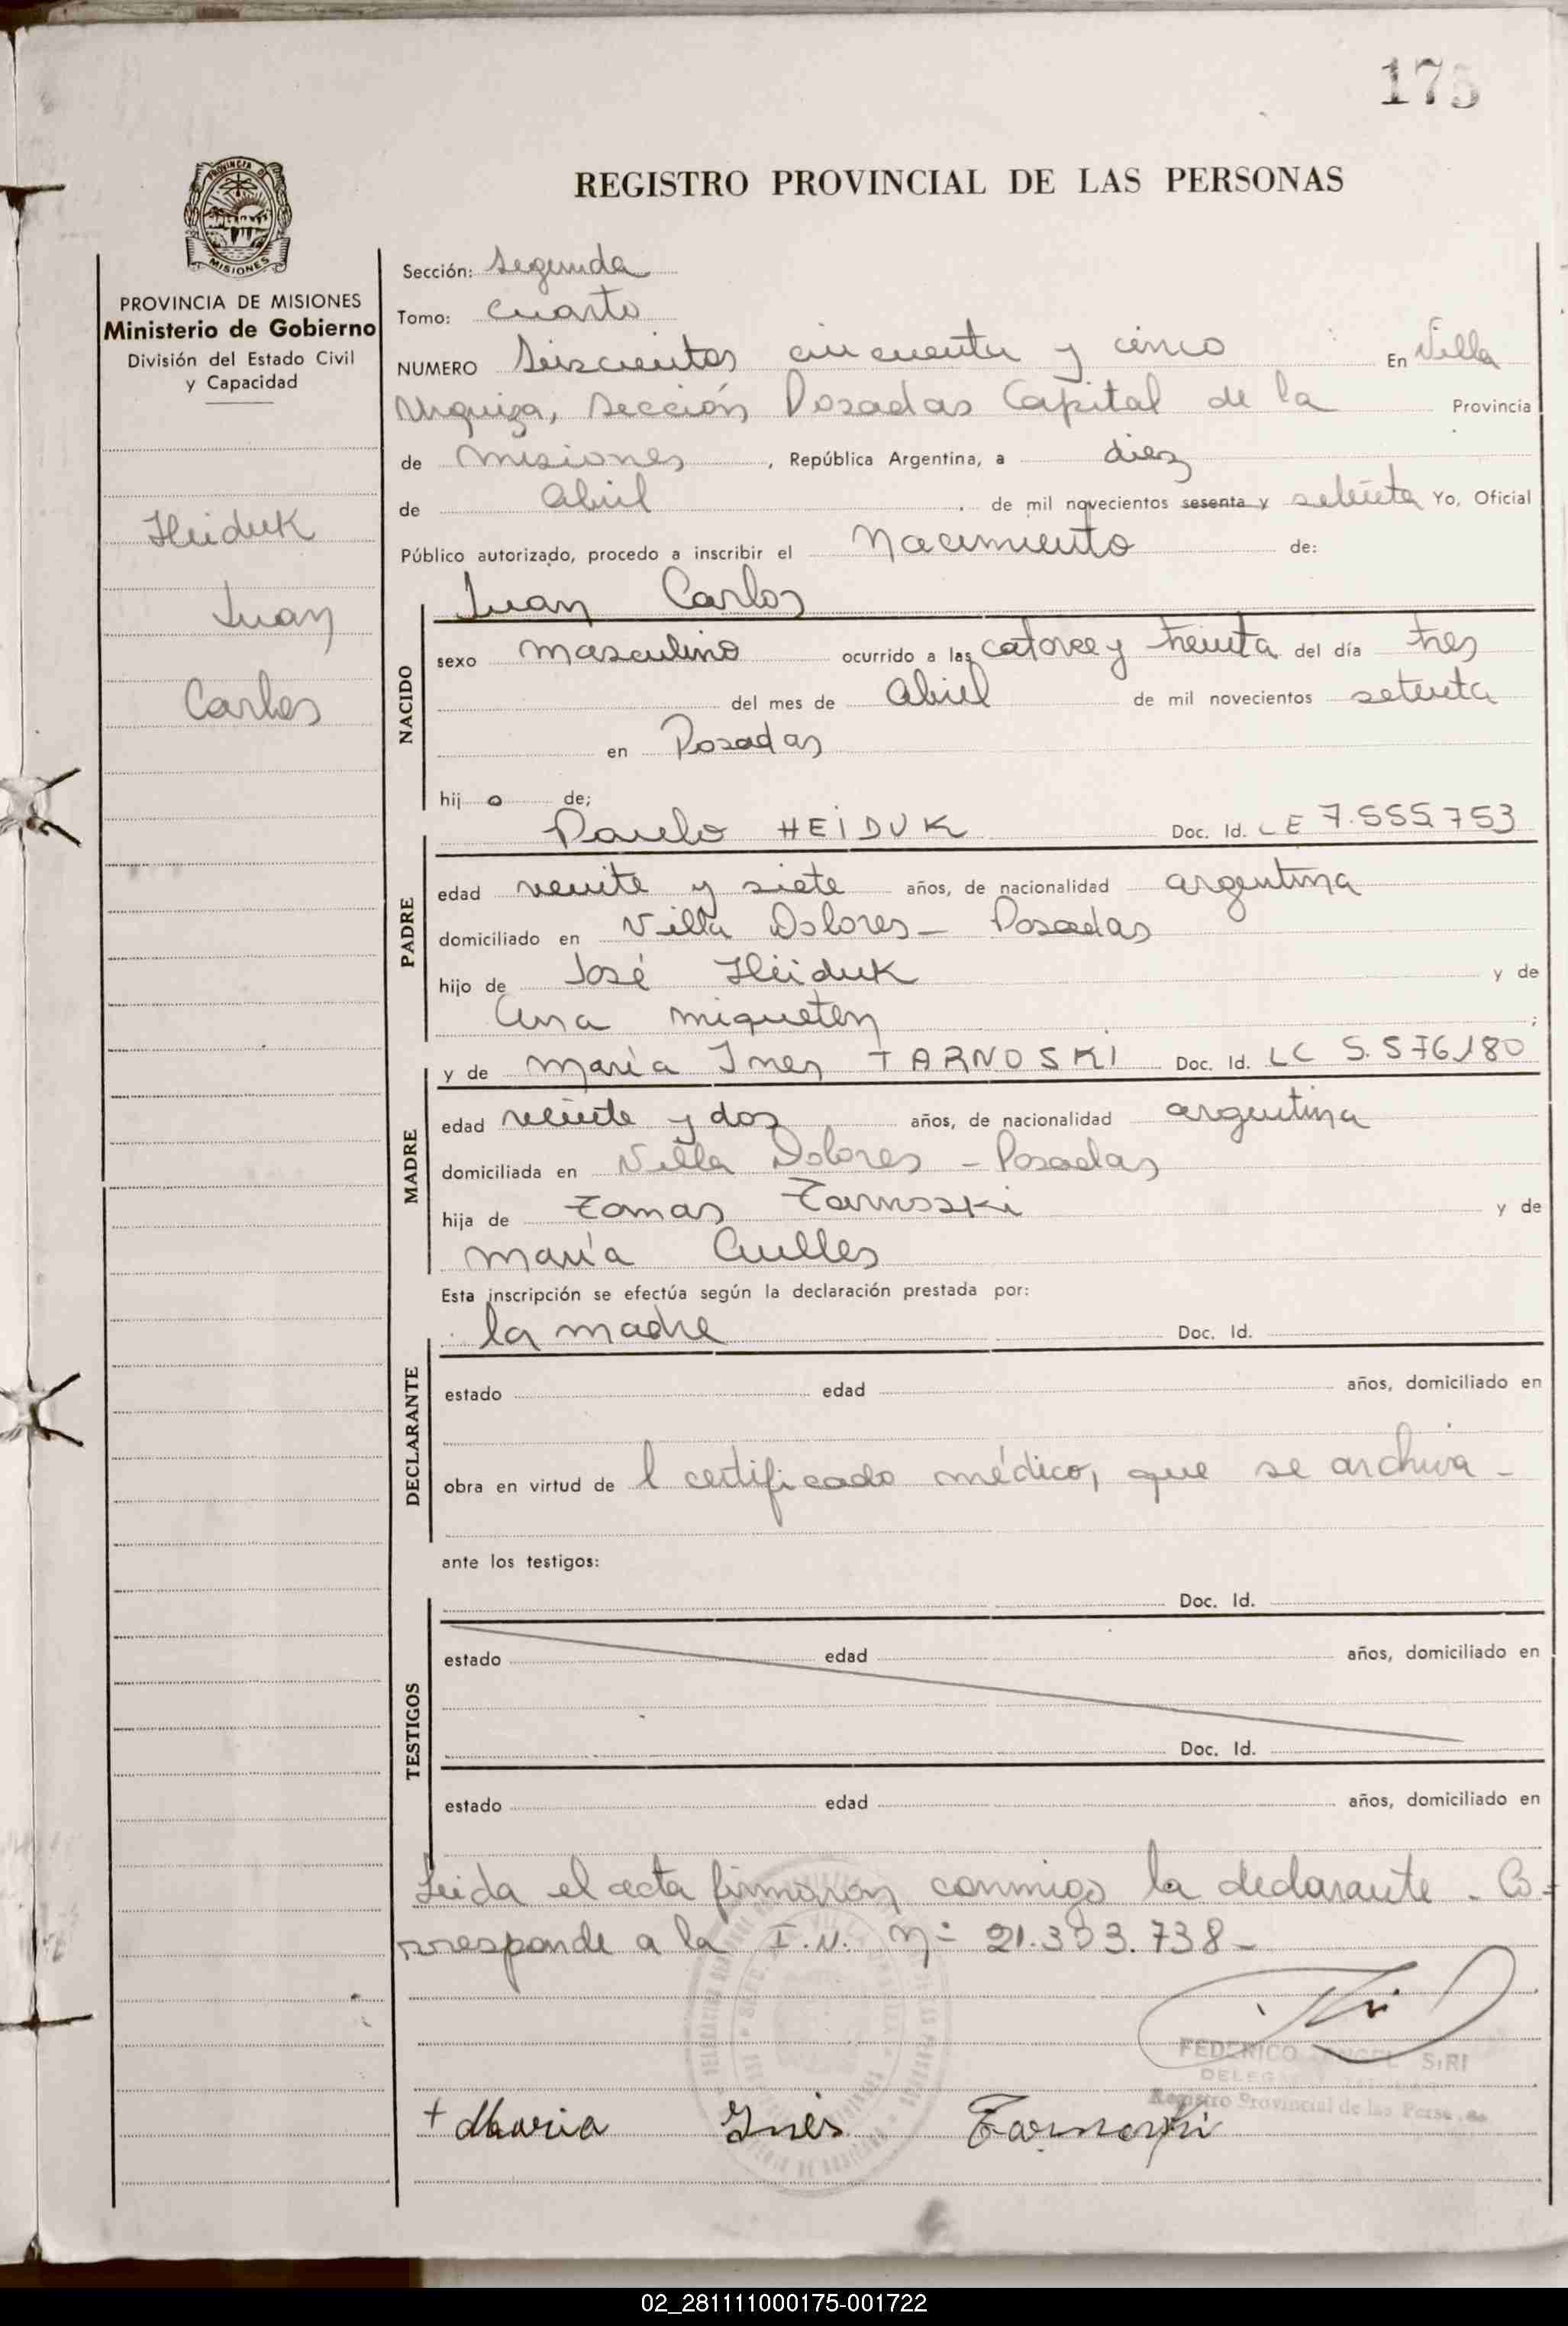 175
REGISTRO PROVINCIAL DE LAS PERSONAS
PROVINCIA DE
MISIONES
PROVINCIA DE MISIONES
Ministerio de Gobierno
División del Estado Civil
y Capacidad
Heiduk
Juan
Carlos
Sección: Segunda
Tomo: Cuarto
NUMERO Seiscientos cincuenta y cinco En Villa
Urquiza, Sección Posadas Capital de la Provincia
de Misiones, República Argentina, a diez
de Abril de mil novecientos sesenta y setenta Yo, Oficial
Público autorizado, procedo a inscribir el Nacimiento de:
Juan Carlos
NACIDO
sexo masculino ocurrido a las catorce y treinta del día tres
del mes de Abril de mil novecientos setenta
en Posadas
hijo de;
Paulo HEIDUK Doc. Id. LE 7.555.753
PADRE
edad veinte y siete años, de nacionalidad argentina
domiciliado en Villa Dolores - Posadas
hijo de José Heiduk y de
Ana Miqueten;
y de María Ines TARNOSKI Doc. Id. LC 5.576.180
MADRE
edad veinte y dos años, de nacionalidad argentina
domiciliada en Villa Dolores - Posadas
hija de Tomas Tarnoski y de
María
Esta inscripción se efectúa según la declaración prestada por:
la madre Doc. Id.
DECLARANTE
estado edad años, domiciliado en
obra en virtud de l certificado médico, que se archiva -
ante los testigos:
Doc. Id.
TESTIGOS
estado edad años, domiciliado en
Doc. Id.
estado edad años, domiciliado en
Leida el acta firmaron conmigo la declarante - Co-
rresponde a la I.N. Nº 21.303.738-
FEDERICO ANGEL SIRI
Registro Provincial de las Personas
+ Maria Inés Tarnoski
02_281111000175-001722